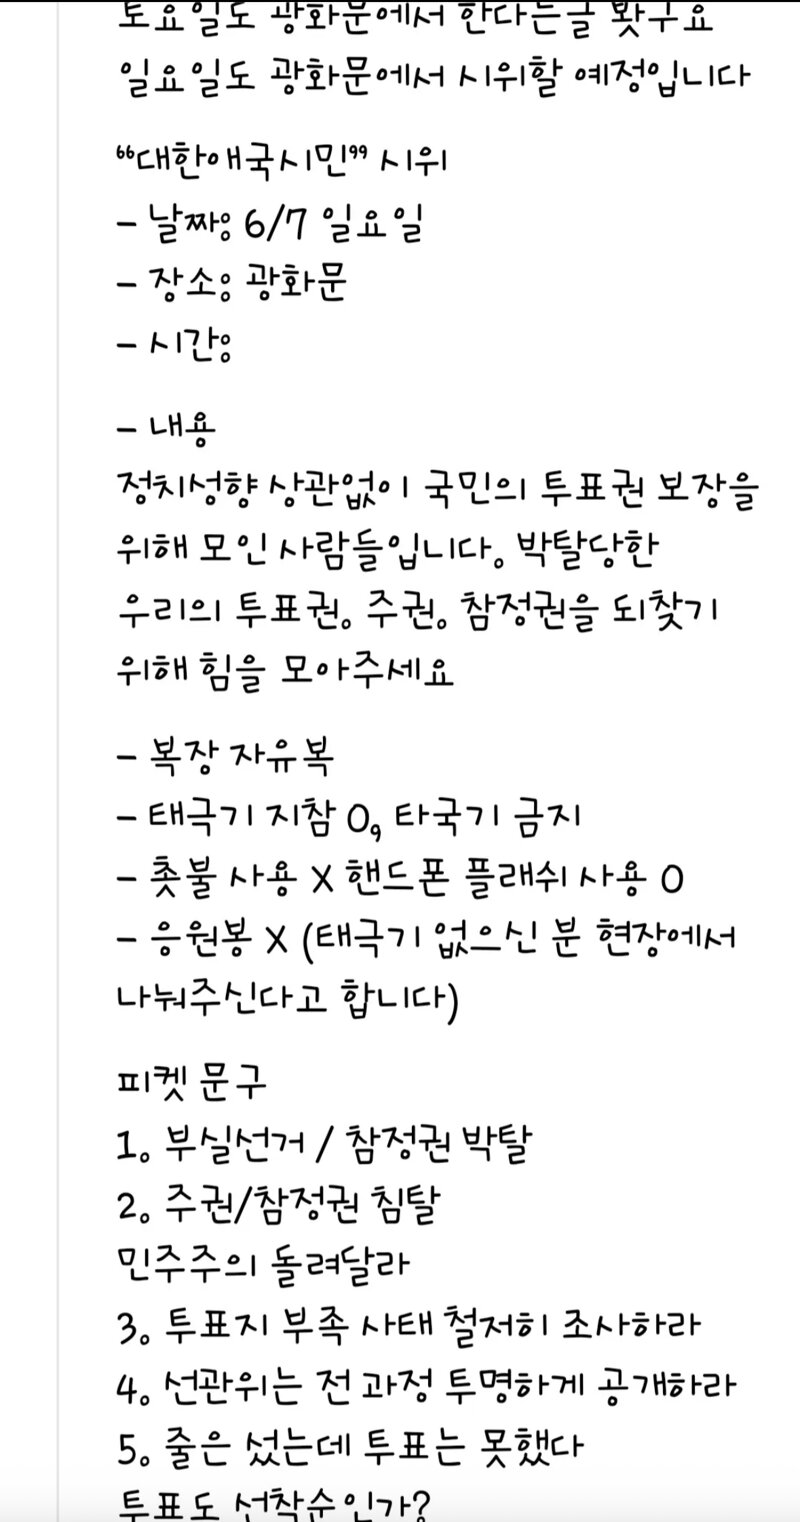 토요일도 광화문에서 한다는글 봣구요
일요일도 광화문에서 시위할 예정입니다
“대한애국시민” 시위
- 날짜: 6/7 일요일
- 장소: 광화문
- 시간:
- 내용
정치성향 상관없이 국민의 투표권 보장을
위해 모인 사람들입니다. 박탈당한
우리의 투표권. 주권. 참정권을 되찾기
위해 힘을 모아주세요
- 복장 자유복
- 태극기 지참 O, 타국기 금지
- 촛불 사용 X 핸드폰 플래쉬 사용 O
- 응원봉 X (태극기 없으신 분 현장에서
나눠주신다고 합니다)
피켓 문구
1. 부실선거 / 참정권 박탈
2. 주권/참정권 침탈
민주주의 돌려달라
3. 투표지 부족 사태 철저히 조사하라
4. 선관위는 전 과정 투명하게 공개하라
5. 줄은 섰는데 투표는 못했다
투표도 선착순인가?